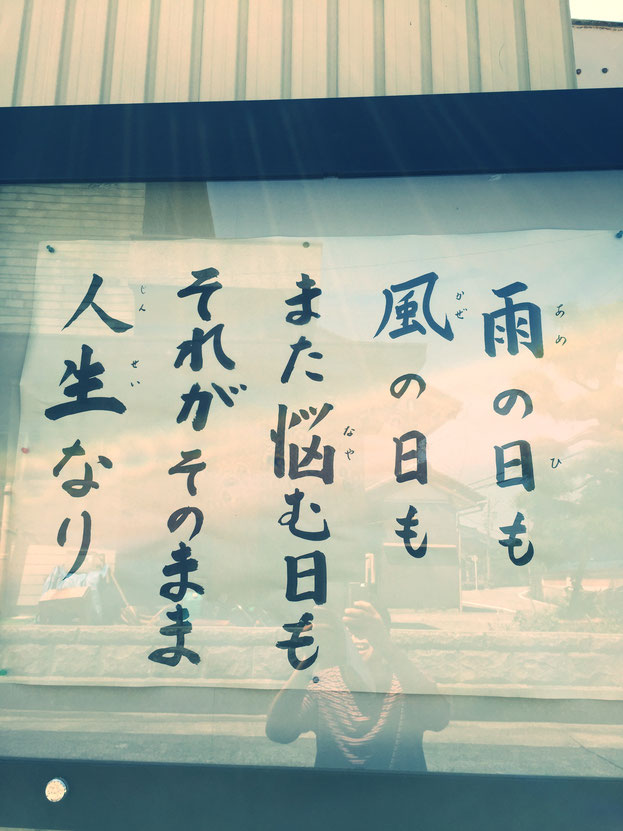 雨の日も
風の日も
また悩む日も
それがそのまま
人生なり
あめ
ひ
かぜ
なや
じん
せい